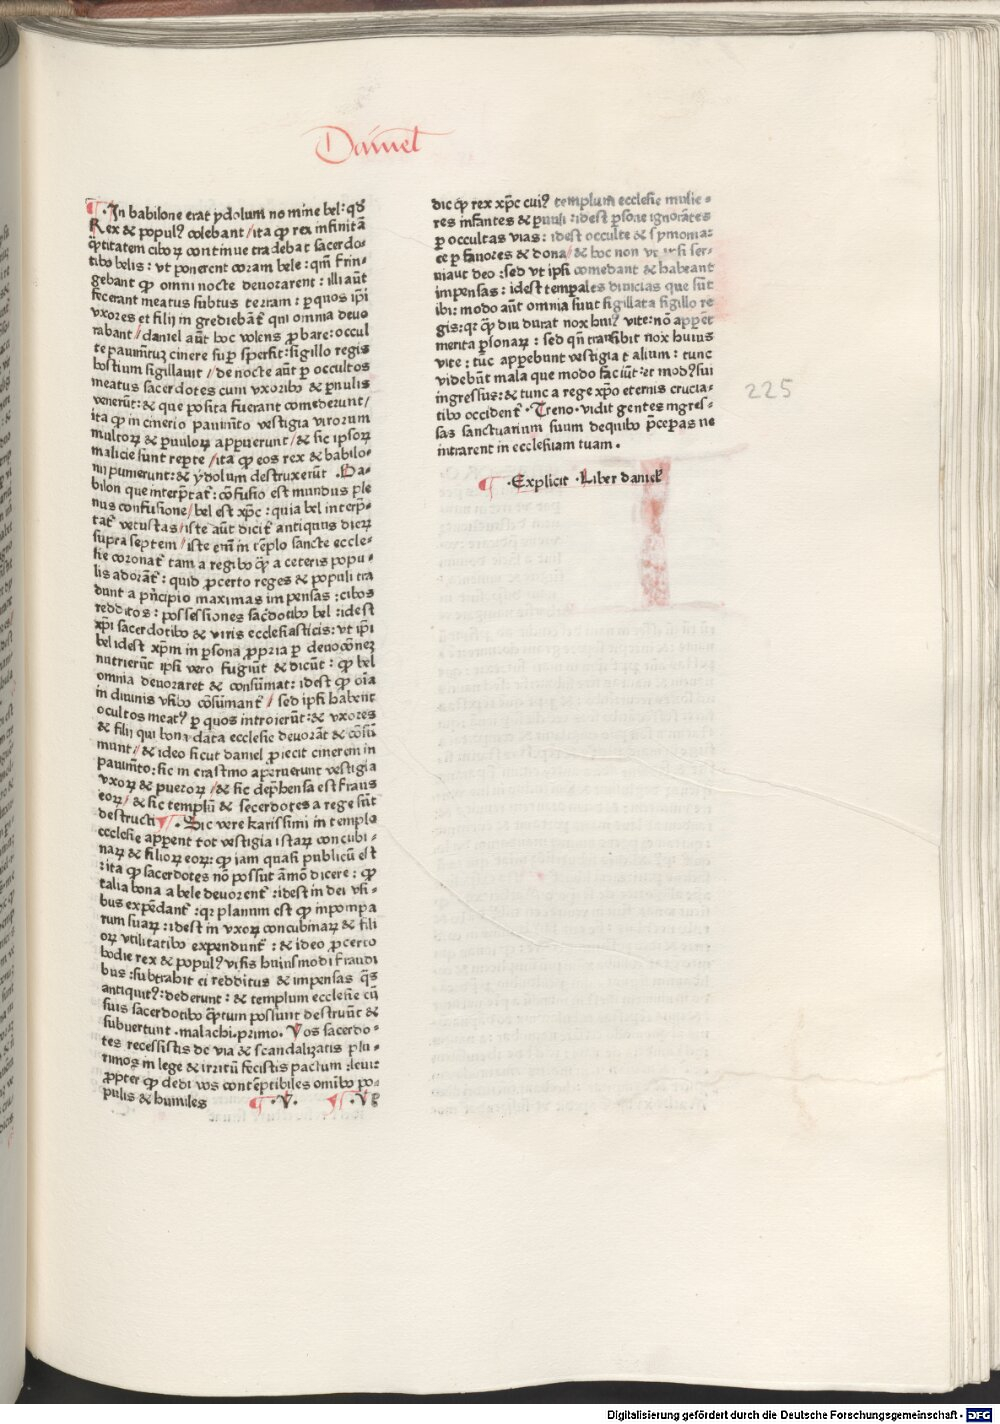 Daniel
¶ .In babilone erat ydolum no mine bel: qd̄
Rex & populꝰ colebant / ita ꝙ rex infinitā
q̄titatem ciboꝝ continue tradebat sacerdo-
tibꝰ belis: vt ponerent coram bele: qm̄ frin-
gebant ꝙ omni nocte deuorarent: illi aūt
fecerant meatus subtus terram: ꝑ quos ip̄i
vxores et filij in grediebāt̄ qui omnia deuo
rabant / daniel aūt hoc volens ꝓbare: occul
te pauimētuꝫ cinere sup̄ sꝑsit: sigillo regis
hostium sigillauit / de nocte aūt ꝑ occultos
meatus sacerdotes cum vxoribꝰ & ꝑuulis
venerūt: & que posita fuerant comederunt /
ita ꝙ in cinerio pauimēto vestigia virorum
mulieꝝ & ꝑuuloꝝ apꝑuerunt / & sic ipsoꝝ
malicie sunt reꝑte / ita ꝙ eos rex & babilo-
nij punierunt: & ẏdolum destruxerūt .Ba-
bilon que interp̄tat̄: cōfusio est mundus ple
nus confusione / bel est xp̄c: quia bel interp̄-
tat̄ vetustas / iste aūt dicit̄ antiquus dieꝝ
supra septem / iste em̄ in tēplo sancte eccle-
sie coronat̄ tam a regibꝰ q̄ a ceteris popu-
lis adorāt̄: quid ꝓcerto reges & populi tra
dunt a pn̄cipio maximas impensas: cibos
redditos: possessiones sac̄dotibꝰ bel: idest
xp̄i sacerdotibꝰ & viris ecclesiasticis: vt ip̄i
bel idest xp̄m in ꝑsona ꝓpria ꝑ deuocōneꝫ
nutrierūt ipsi vero fugiūt & dicūt: ꝙ bel
omnia deuoraret & consūmat: idest ꝙ oīa
in diuinis vsibꝰ cōsumant̄ / sed ipsi habent
ocultos meatꝰ ꝑ quos introierūt: & vxores
& filij qui bona data ecclesie deuorāt & cōsū
munt / & ideo sicut daniel ꝓiecit cinerem in
pauimēto: sic in crastino aperuerunt vestigia
vxoꝝ & pueroꝝ / & sic dep̄hensa est fraus
eoꝝ / & sic templū & secerdotes a rege sūt
destructi ¶ .Sic vere karissimi in templo
ecclesie apꝑent tot vestigia istaꝝ concubi-
naꝝ & filioꝝ eoꝝ: ꝙ iam quasi publicū est
: ita ꝙ sacerdotes nō possūt āmō dicere: ꝙ
talia bona a bele deuorent̄: idest in dei vsi-
bus expēdant̄: qꝛ planum est ꝙ in pompa
rum suaꝝ: idest in vxoꝝ concubinaꝝ & fili
oꝝ vtilitatibꝰ expendunt̄: & ideo ꝓcerto
hodie rex & populꝰ visis huiusmodi fraudi
bus: subtrahit ei redditus & impensas q̄s
antiquitꝰ: dederunt: & templum ecclesie cū
suis sacerdotibꝰ q̄ptum possunt destruūt &
subuertunt .malachi. primo. Vos sacerdo-
tes recessistis de via & scandalizatis plu-
rimos in lege & irritū fecistis pactum: leui:
ꝓpter ꝙ dedi vos contēptibiles omībꝰ po-
pulis & humiles ¶ .V. ¶ .V ꝑ
dic ꝙ rex xp̄c cuiꝰ templum ecclesie mulie-
res infantes & ꝑuuli: idest ꝑsone ignorātes
ꝑ occultas vias: idest occulte & symonia-
ce ꝑ fauores & dona / & hoc non vt ipsi ser-
uiant deo: sed vt ipsi comedant & habeant
impensas: idest temꝑales diuicias que sūt
ibi: modo aūt omnia sunt sigillata sigillo re
gis: qꝛ q̄ diu durat nox huiꝰ vite: nō apꝑēt
merita ꝑsonaꝝ: sed qn̄ transibit nox huius
vite: tūc apꝑebunt vestigia t alium: tunc
videbūt mala que modo faciūt: et modꝰ sui
ingressus: & tunc a rege xp̄o eternis crucia-
tibꝰ occident̄ .Treno. vidit gentes ingres-
sas sanctuarium suum dequibꝰ p̄ceꝑas ne
intrarent in ecclesiam tuam.
225
¶ .Explicit .Liber daniel̄
Digitalisierung gefördert durch die Deutsche Forschungsgemeinschaft - DFG